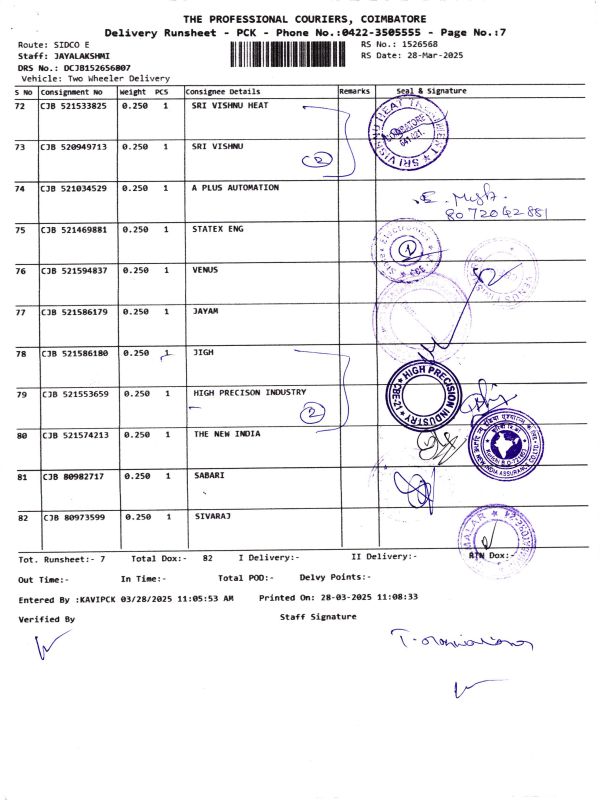 THE PROFESSIONAL COURIERS, COIMBATORE
Delivery Runsheet - PCK - Phone No.:0422-3505555 - Page No.:7
Route: SIDCO E RS No.: 1526568
Staff: JAYALAKSHMI RS Date: 28-Mar-2025
DRS No.: DCJB152656807
Vehicle: Two Wheeler Delivery
S No Consignment No Weight PCS Consignee Details Remarks Seal & Signature
72 CJB 521533825 0.250 1 SRI VISHNU HEAT
SRI VISHNU HEAT TREATMENT
COIMBATORE
641 021.
73 CJB 520949713 0.250 1 SRI VISHNU
2
74 CJB 521034529 0.250 1 A PLUS AUTOMATION
8072042881
75 CJB 521469881 0.250 1 STATEX ENG
1
76 CJB 521594837 0.250 1 VENUS
77 CJB 521586179 0.250 1 JAYAM
78 CJB 521586180 0.250 1 JIGH
79 CJB 521553659 0.250 1 HIGH PRECISON INDUSTRY
2
HIGH PRECISION INDUSTRY
CBE-21
80 CJB 521574213 0.250 1 THE NEW INDIA
81 CJB 80982717 0.250 1 SABARI
82 CJB 80973599 0.250 1 SIVARAJ
MALAR
Tot. Runsheet:- 7 Total Dox:- 82 I Delivery:- II Delivery:- RTN Dox:-
Out Time:- In Time:- Total POD:- Delvy Points:-
Entered By :KAVIPCK 03/28/2025 11:05:53 AM Printed On: 28-03-2025 11:08:33
Verified By Staff Signature